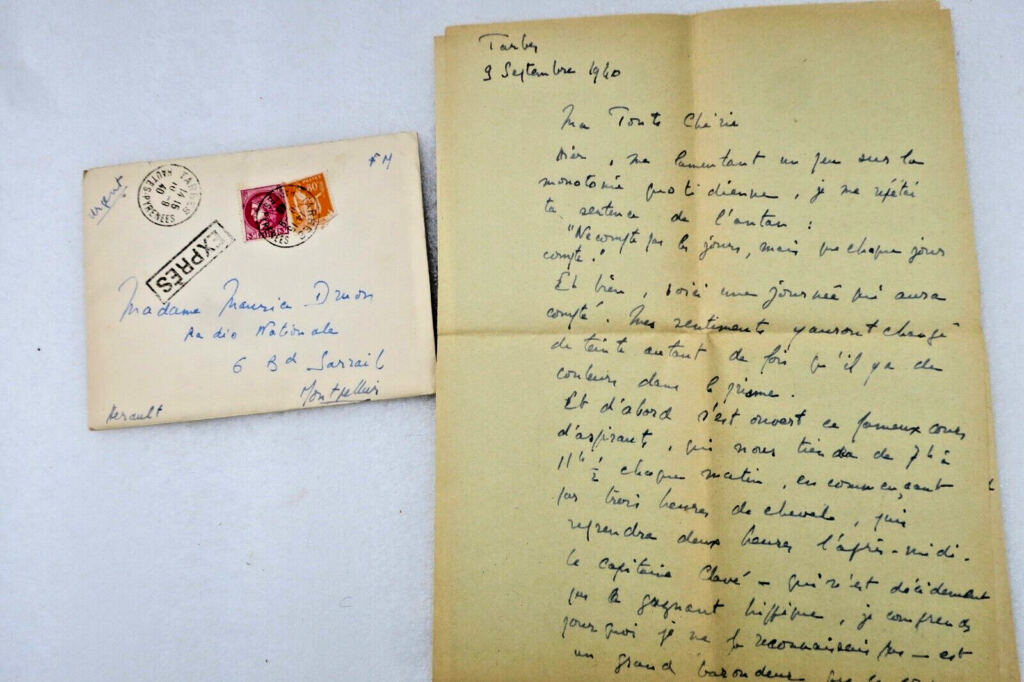 urgent
FM
TARBES
14 16
10 9
40
HAUTES-PYRENEES
EXPRÈS
Madame Maurice Druon
Radio Nationale
6 Bd Sarrail
Montpellier
Herault
Tarbes
9 Septembre 1940
Ma Toute Chérie
Hier, me lamentant un peu sur la
monotonie quotidienne, je me répétai
ta sentence de l'antan :
"Ne compte pas les jours, mais que chaque jour
compte."
Et bien, voici une journée qui aura
compté. Mes sentiments y auront changé
de teinte autant de fois qu'il y a de
couleurs dans le prisme.
Et d'abord s'est ouvert ce fameux cours
d'aspirants, qui nous tiendra de 7h à
11h ½ chaque matin, en commençant
par trois heures de cheval, puis
reprendra deux heures l'après-midi.
Le capitaine Clavé — qui n'est décidement
pas le gagnant hippique, je comprends
pourquoi je ne le reconnaissais pas — est
un grand barondeur